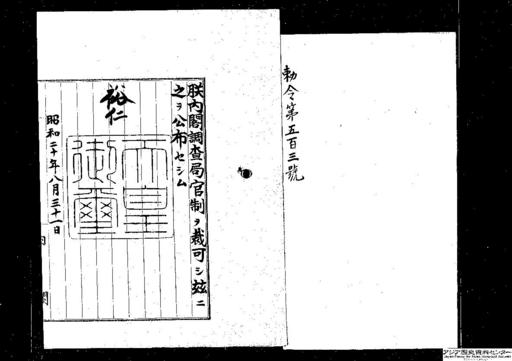 勅令第五百三號
朕內閣調査局官制ヲ裁可シ玆ニ
之ヲ公布セシム
裕仁
天皇御璽
昭和二十年八月三十一日
内閣
アジア歴史資料センター